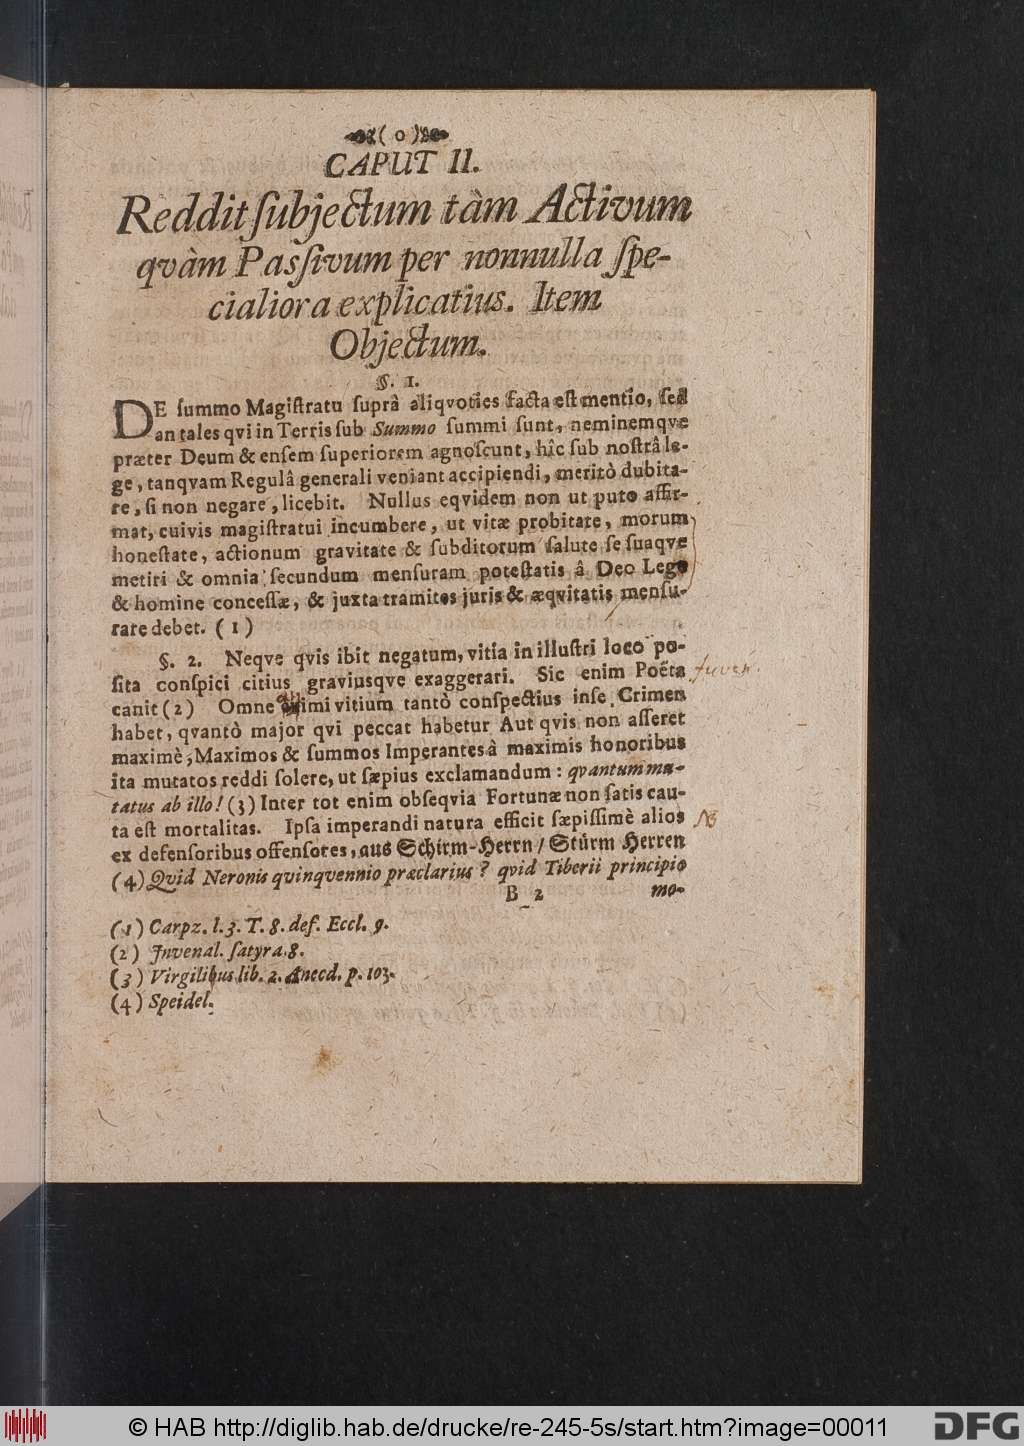 ( 0 )
CAPUT II.
Reddit ſubjectum tàm Activum
qvàm Paſsivum per nonnulla ſpe-
cialiora explicatius. Item
Objectum.
§. 1.
DE ſummo Magiſtratu ſuprâ aliqvoties facta eſt mentio, ſed
an tales qvi in Terris ſub Summo ſummi ſunt, neminemqve
præter Deum & enſem ſuperiorem agnoſcunt, hîc ſub noſtrâ le-
ge, tanqvam Regulâ generali veniant accipiendi, meritò dubita-
re, ſi non negare, licebit. Nullus eqvidem non ut puto affir-
mat, cuivis magiſtratui incumbere, ut vitæ probitate, morum
honeſtate, actionum gravitate & ſubditorum ſalute ſe ſuaqve
metiri & omnia ſecundum menſuram poteſtatis â Deo Lege
& homine conceſſæ, & juxta tramites juris & æqvitatis menſu-
rare debet. (1)
§. 2. Neqve qvis ibit negatum, vitia in illuſtri loco po-
ſita conſpici citius graviusqve exaggerari. Sic enim Poëta Juven.
canit (2) Omne animi vitium tantò conſpectius inſe Crimen
habet, qvantò major qvi peccat habetur Aut qvis non aſſeret
maximè, Maximos & ſummos Imperantes à maximis honoribus
ita mutatos reddi ſolere, ut ſæpius exclamandum: qvantum mu-
tatus ab illo! (3) Inter tot enim obſeqvia Fortunæ non ſatis cau-
ta eſt mortalitas. Ipſa imperandi natura efficit ſæpiſſimè alios NB
ex defenſoribus offenſores, aus Schirm-Herrn / Stürm Herren
(4) Qvid Neronis qvinqvennio præclarius? qvid Tiberii principio
B 2 mo-
(1) Carpz. l. 3. T. 8. def. Eccl. 9.
(2) Juvenal. ſatyra. 8.
(3) Virgilibus lib. 2. Anecd. p. 103.
(4) Speidel.
© HAB http://diglib.hab.de/drucke/re-245-5s/start.htm?image=00011
DFG